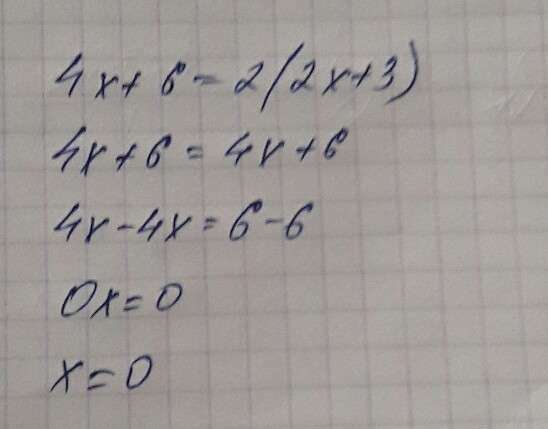 4x+6=2(2x+3)
4x+6=4x+6
4x-4x=6-6
0x=0
x=0